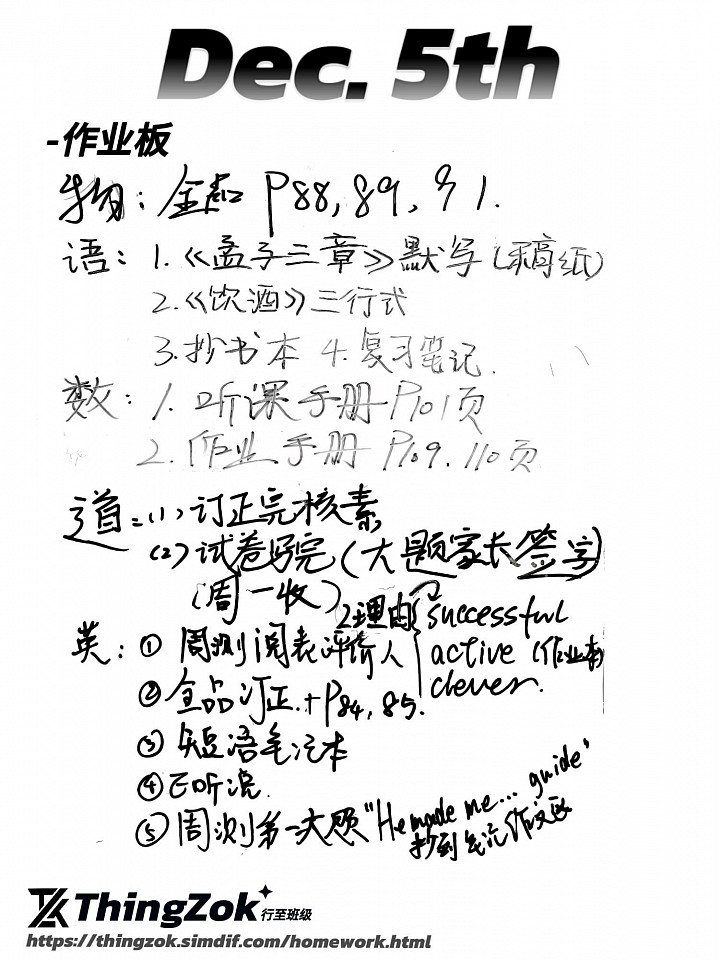 Dec. 5th
-作业板
物: 全品 P88, 89, 91.
语: 1.《孟子三章》默写 (稿纸)
2.《饮酒》三行式
3.抄书本 4.复习笔记.
数: 1. 听课手册 P101页
2. 作业手册 P109. 110页
道: (1) 订正完核素
(2) 试卷写完 (大题家长签字)
(周一收)
英: ① 周测阅表评价人 2理由 successful
active (作业本)
clever.
② 全品订正. + P84, 85.
③ 短语笔记本
④ E听说.
⑤ 周测第一大题 "He made me... guide"
抄到 作文
ThingZok 行至班级
https://thingzok.simdif.com/homework.html